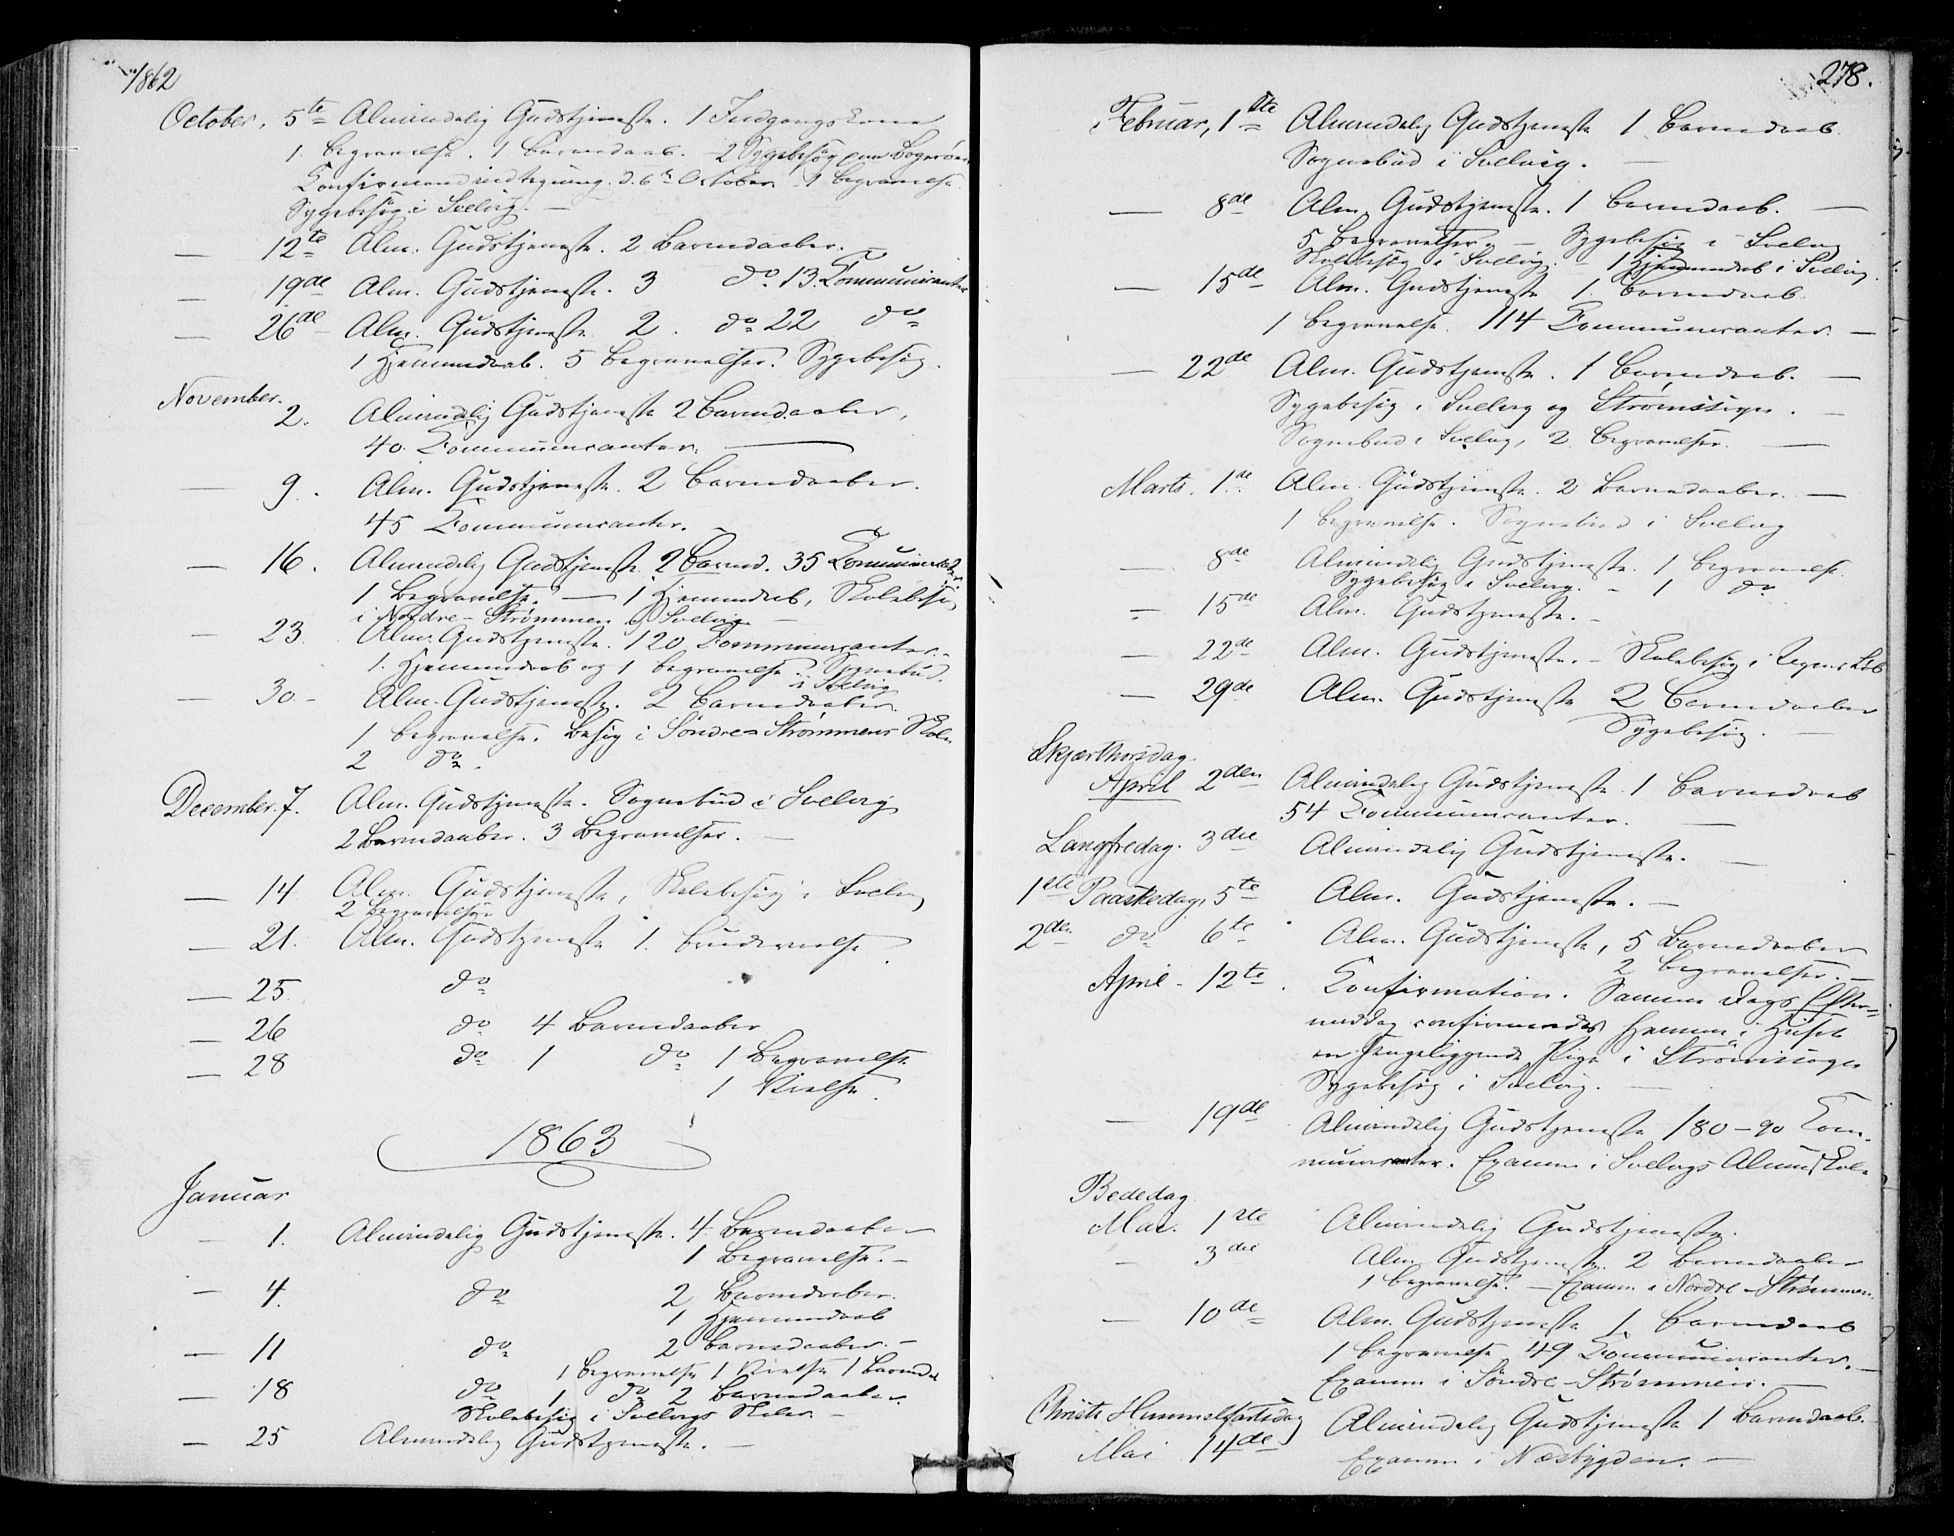 1862
October. 5te Almindelig Gudstjeneste. 1 Indgangskone
1 Begravelse. 1 Barnedaab. - 2 Sygebesøg paa
Confirmandindtegning. d. 6te October - 1 Begravelse.
Sygebesøg i Svelvig. —
— 12te Alm. Gudstjeneste. 2 Barnedaaber. —
— 19de Alm. Gudstjeneste. 3 do 13. Communicanter
— 26de Alm. Gudstjeneste 2. do 22 do
1 Hjemmedaab. 5 Begravelser. Sygebesøg.
November.
2. Almindelig Gudstjeneste 2 Barnedaaber,
40. Communicanter. —
— 9. Alm. Gudstjeneste. 2 Barnedaaber.
45 Communicanter.
— 16. Almindelig Gudstjeneste 2 Barned. 35 Communicanter.
1 Begravelse. — 1 Hjemmedaab, Skolebesøg
i Nordre-Strømmen og Svelvig —
— 23. Alm. Gudstjeneste. 120 Communicanter. -
1. Hjemmedaab og 1 Begravelse. Sognebud.
i Svelvig
— 30. - Alm. Gudstjeneste. 2 Barnedaaber.
1 Begravelse. Besøg i Søndre-Strømmens Skole
2 do.
December. 7. Alm. Gudstjeneste. Sognebud i Svelvig
2 Barnedaaber. 3 Begravelser. —
— 14 Alm. Gudstjeneste, Skolebesøg i Svelvig
2 Begravelser
— 21. Alm. Gudstjeneste 1. Brudevielse.
— 25. do
— 26 do 4 Barnedaaber
— 28 do 1 do 1 Begravelse
1 Vielse.
1863
Januar
— 1. Almindelig Gudstjeneste. 4 Barnedaaber
1 Begravelse. -
— 4. do 2 Barnedaaber.
1 Hjemmedaab
— 11 do 2 Barnedaaber. -
1 Begravelse 1 Vielse 1 Barned
— 18 do 1 do 2 Barnedaaber.
Skolebesøg i Svelvigs Skoler. —
— 25 Almindelig Gudstjeneste. —
278.
Februar, 1ste Almindelig Gudstjeneste 1 Barnedaab.
Sognebud i Svelvig. —
— 8de Alm. Gudstjeneste. 1 Barnedaab. —
5 Begravelser. — Sygebesøg i Svelvig
Skolebesøg i Svelvig. - 1 Hjemmedaab i Svelvig.
— 15de Alm. Gudstjeneste 1 Barnedaab.
1 Begravelse. 114 Communicanter. —
— 22de Alm. Gudstjeneste. 1 Barnedaab. —
Sygebesøg i Svelvig og Strømstigen. —
Sognebud i Svelvig, 2 Begravelser. —
Marts. 1de Alm. Gudstjeneste. 2 Barnedaaber. —
1 Begravelse. Sognebud i Svelvig
— 8de Almindelig Gudstjeneste. 1 Begravelse.
Sygebesøg i Svelvig. - 1 do
— 15de Alm. Gudstjeneste. -
— 22de Alm. Gudstjeneste. - Skolebesøg i
— 29de Alm. Gudstjeneste 2 Barnedaaber
Sygebesøg. —
Skjærthorsdag.
April 2den Almindelig Gudstjeneste. 1 Barnedaab
54 Communicanter. —
Langfredag. 3die Almindelig Gudstjeneste. —
1ste Paaskedag, 5te Alm. Gudstjeneste. —
2den do 6te Alm. Gudstjeneste, 5 Barnedaaber
2 Begravelser. —
April - 12te. Confirmation. Samme Dags Efter=
middag confirmeredes hjemme i Huset
en sengeliggende Pige i
Sygebesøg i Svelvig. —
— 19de Almindelig Gudstjeneste 180-90 Com-
municanter. Examen i Svelvigs Almueskole
Bededag
Mai. 1ste Almindelig Gudstjeneste.
— 3die Alm. Gudstjeneste. 2 Barnedaaber
1 Begravelse. — Examen i Nordre-Strømmen.
— 10de Alm. Gudstjeneste 1 Barnedaab
1 Begravelse 49 Communicanter. —
Examen i Søndre-Strømmen. —
Christi Himmelfartsdag
Mai 14de Almindelig Gudstjeneste 1 Barnedaab.
Examen i Næsbygden. —